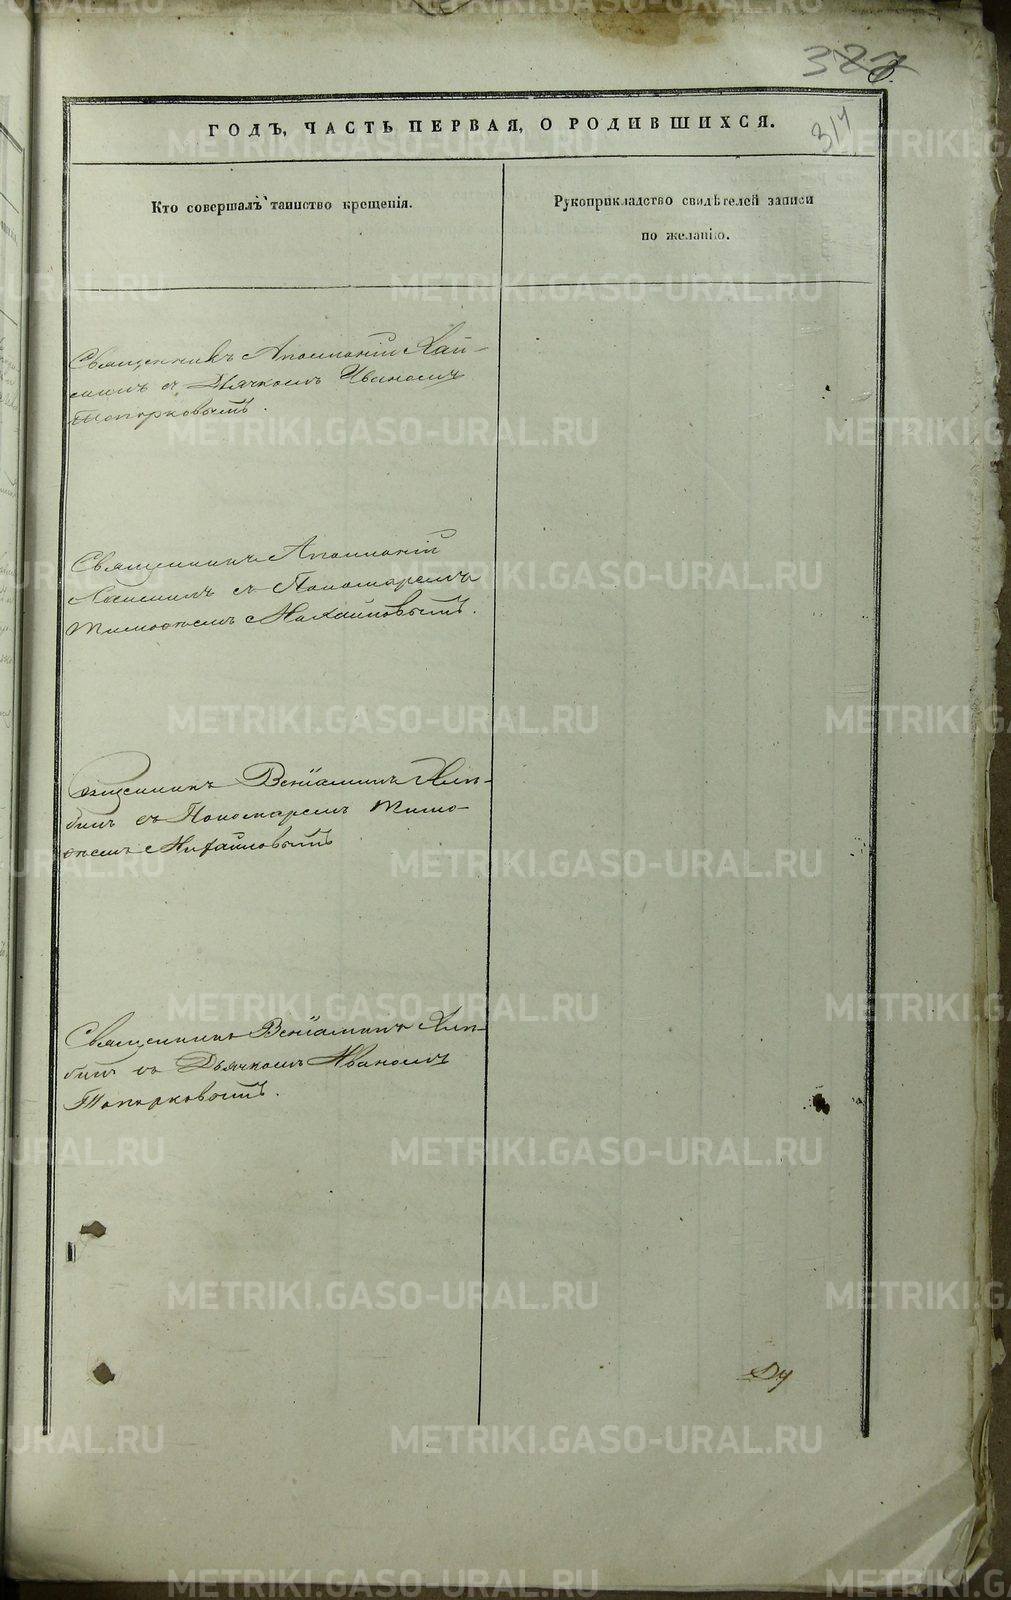 327
314
ГОДЪ, ЧАСТЬ ПЕРВАЯ, О РОДИВШИХСЯ.
Кто совершалъ таинство крещенія.
Рукоприкладство свидѣтелей записи
по желанію.
Священникъ Аполлоній
съ Дьячкомъ Иваномъ
Топорковымъ.
Священникъ Аполлоній
съ Пономаремъ
Тимоѳеемъ Михайловымъ.
Священникъ Веніаминъ Хлы-
бинъ съ Пономаремъ Тимо-
ѳеемъ Михайловымъ
Священникъ Веніаминъ Хлы-
бинъ съ Дьячкомъ Иваномъ
Топорковымъ.
METRIKI.GASO-URAL.RU